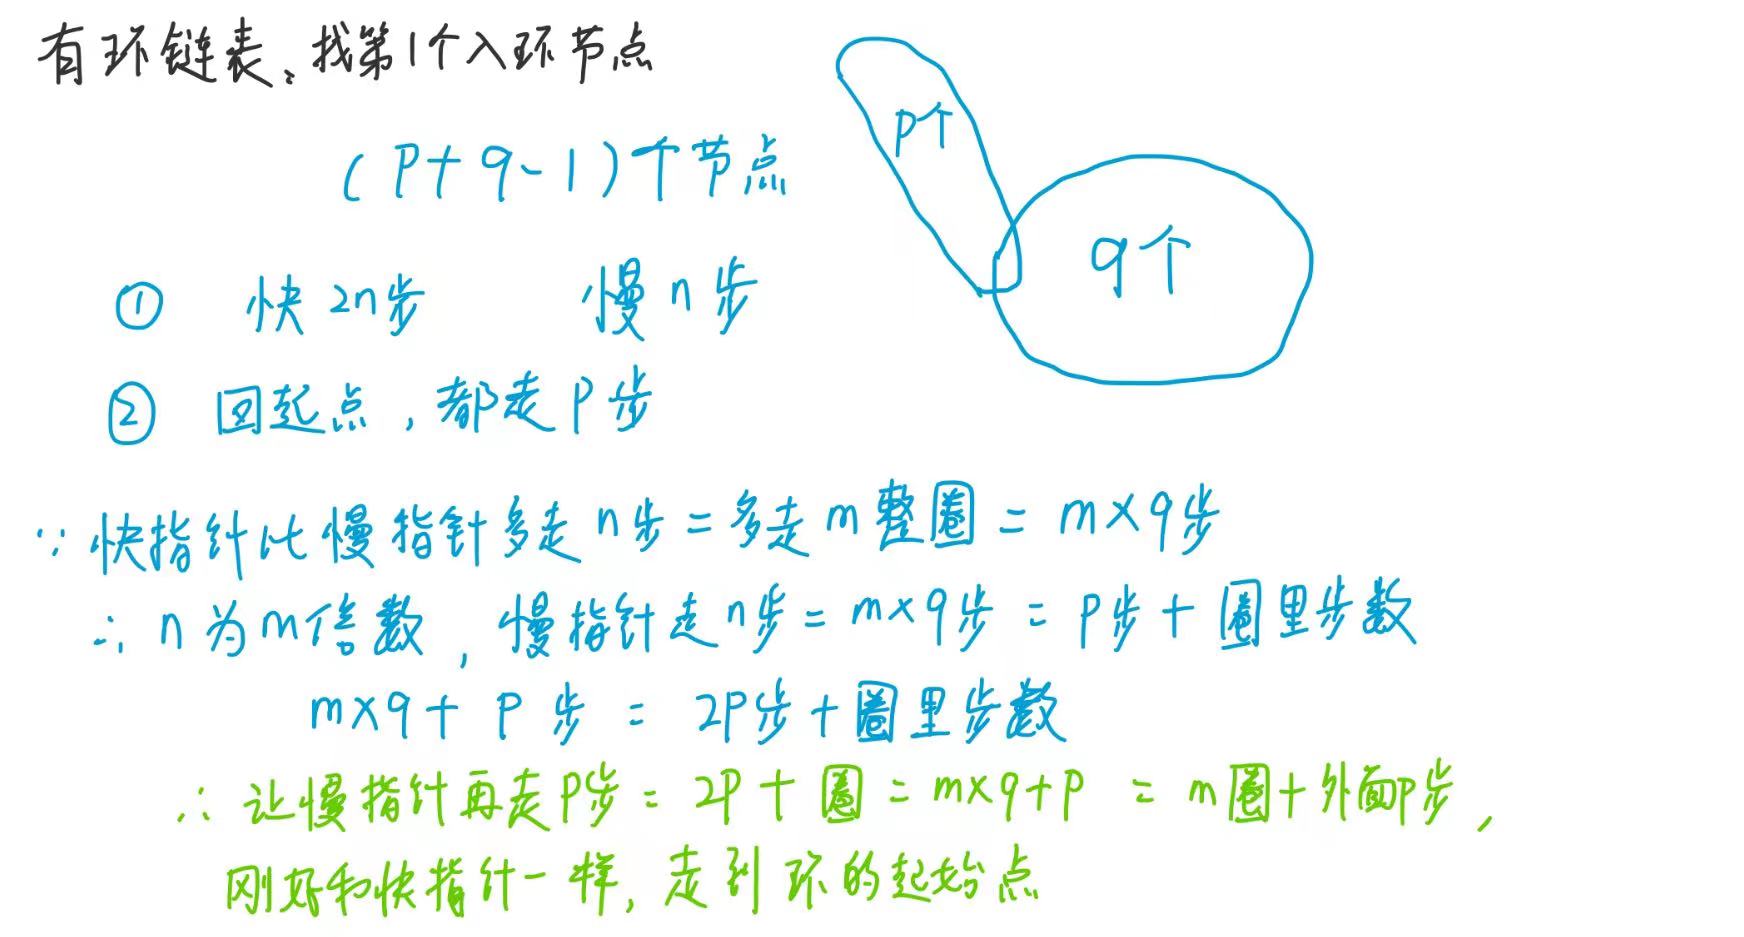 有环链表，找第1个入环节点
P个
(P+q-1)个节点
q个
① 快2n步 慢n步
② 回起点，都走P步
∵ 快指针比慢指针多走n步=多走m整圈=m×q步
∴ n为m倍数，慢指针走n步=m×q步=P步+圈里步数
m×q+P步=2P步+圈里步数
∴ 让慢指针再走P步=2P+圈=m×q+P=m圈+外面P步，
刚好和快指针一样，走到环的起始点